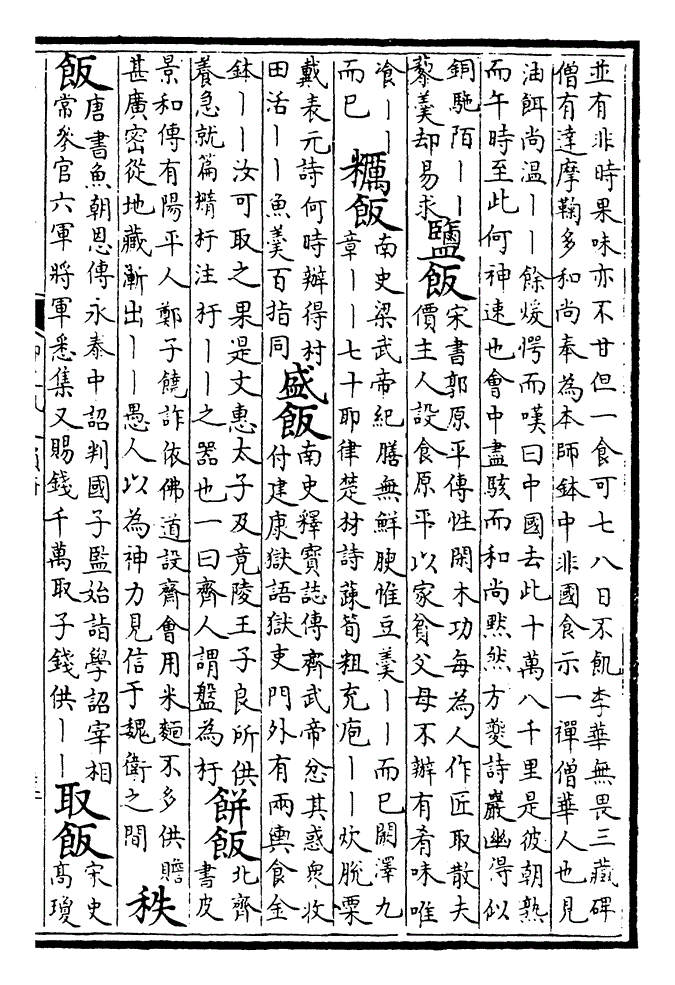 並有非時果味亦不甘但一食可七八日不飢李華無畏三藏碑
僧有達摩鞠多和尚奉為本師鉢中非國食示一禪僧華人也見
油餌尚溫丨丨餘煖愕而嘆曰中國去此十萬八千里是彼朝熟
而午時至此何神速也會中盡駭而和尚默然方夔詩巖幽得似
銅駞陌丨丨
藜羹却易求
鹽飯
宋書郭原平傳性閑木功每為人作匠取散夫
價主人設食原平以家貧父母不辦有肴味唯
飡丨丨
而已
糲飯
南史梁武帝紀膳無鮮腴惟豆羹丨丨而已闞澤九
章丨丨七十耶律楚材詩蔬筍粗充庖丨丨炊脫粟
戴表元詩何時辦得村
田活丨丨魚羹百指同
盛飯
南史釋寶誌傳齊武帝忿其惑衆收
付建康獄語獄吏門外有兩輿食金
鉢丨丨汝可取之果是文惠太子及竟陵王子良所供
養急就篇橢杅注杅丨丨之器也一曰齊人謂盤為杅
餅飯
北齊
書皮
景和傳有陽平人鄭子饒詐依佛道設齋會用米麵不多供贍
甚廣密從地藏漸出丨丨愚人以為神力見信于魏衛之間
秩
飯
唐書魚朝恩傳永泰中詔判國子監始詣學詔宰相
常參官六軍將軍悉集又賜錢千萬取子錢供丨丨
取飯
宋史
高瓊